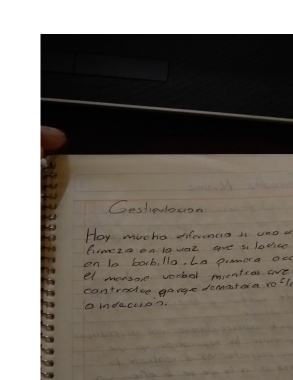 Gesticulacion
Hay mucha diferencia si uno
firmeza en la voz que si lo dice
en la barbilla. La primera
el mensaje verbal mientras que
contradice
o indecisión.